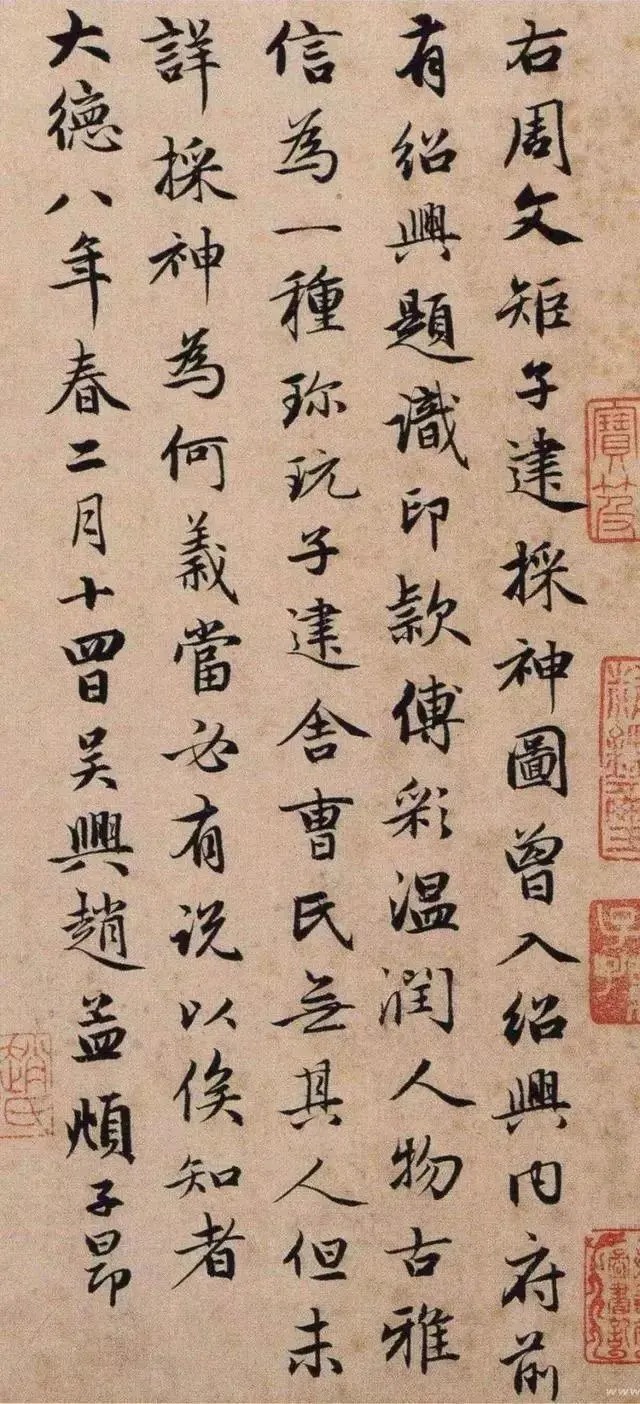 右周文矩子建採神圖曾入紹興内府前
有紹興題識印款傅彩温潤人物古雅
信為一種珎玩子建舍曹氏無其人但未
詳採神為何義當必有说以俟知者
大德八年春二月十四日吴興趙孟頫子昂
趙氏
www.